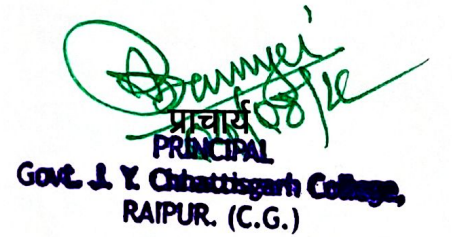 प्राचार्य
PRINCIPAL
Govt. J. Y. Chhattisgarh College,
RAIPUR. (C.G.)